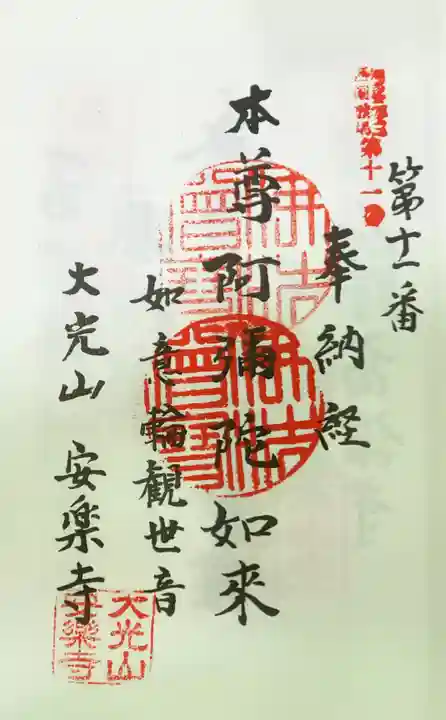 第十一番
奉納経
本尊阿彌陀如来
如意輪観世音
大光山 安楽寺
第十一
佛法
僧寳
大光山
安樂寺